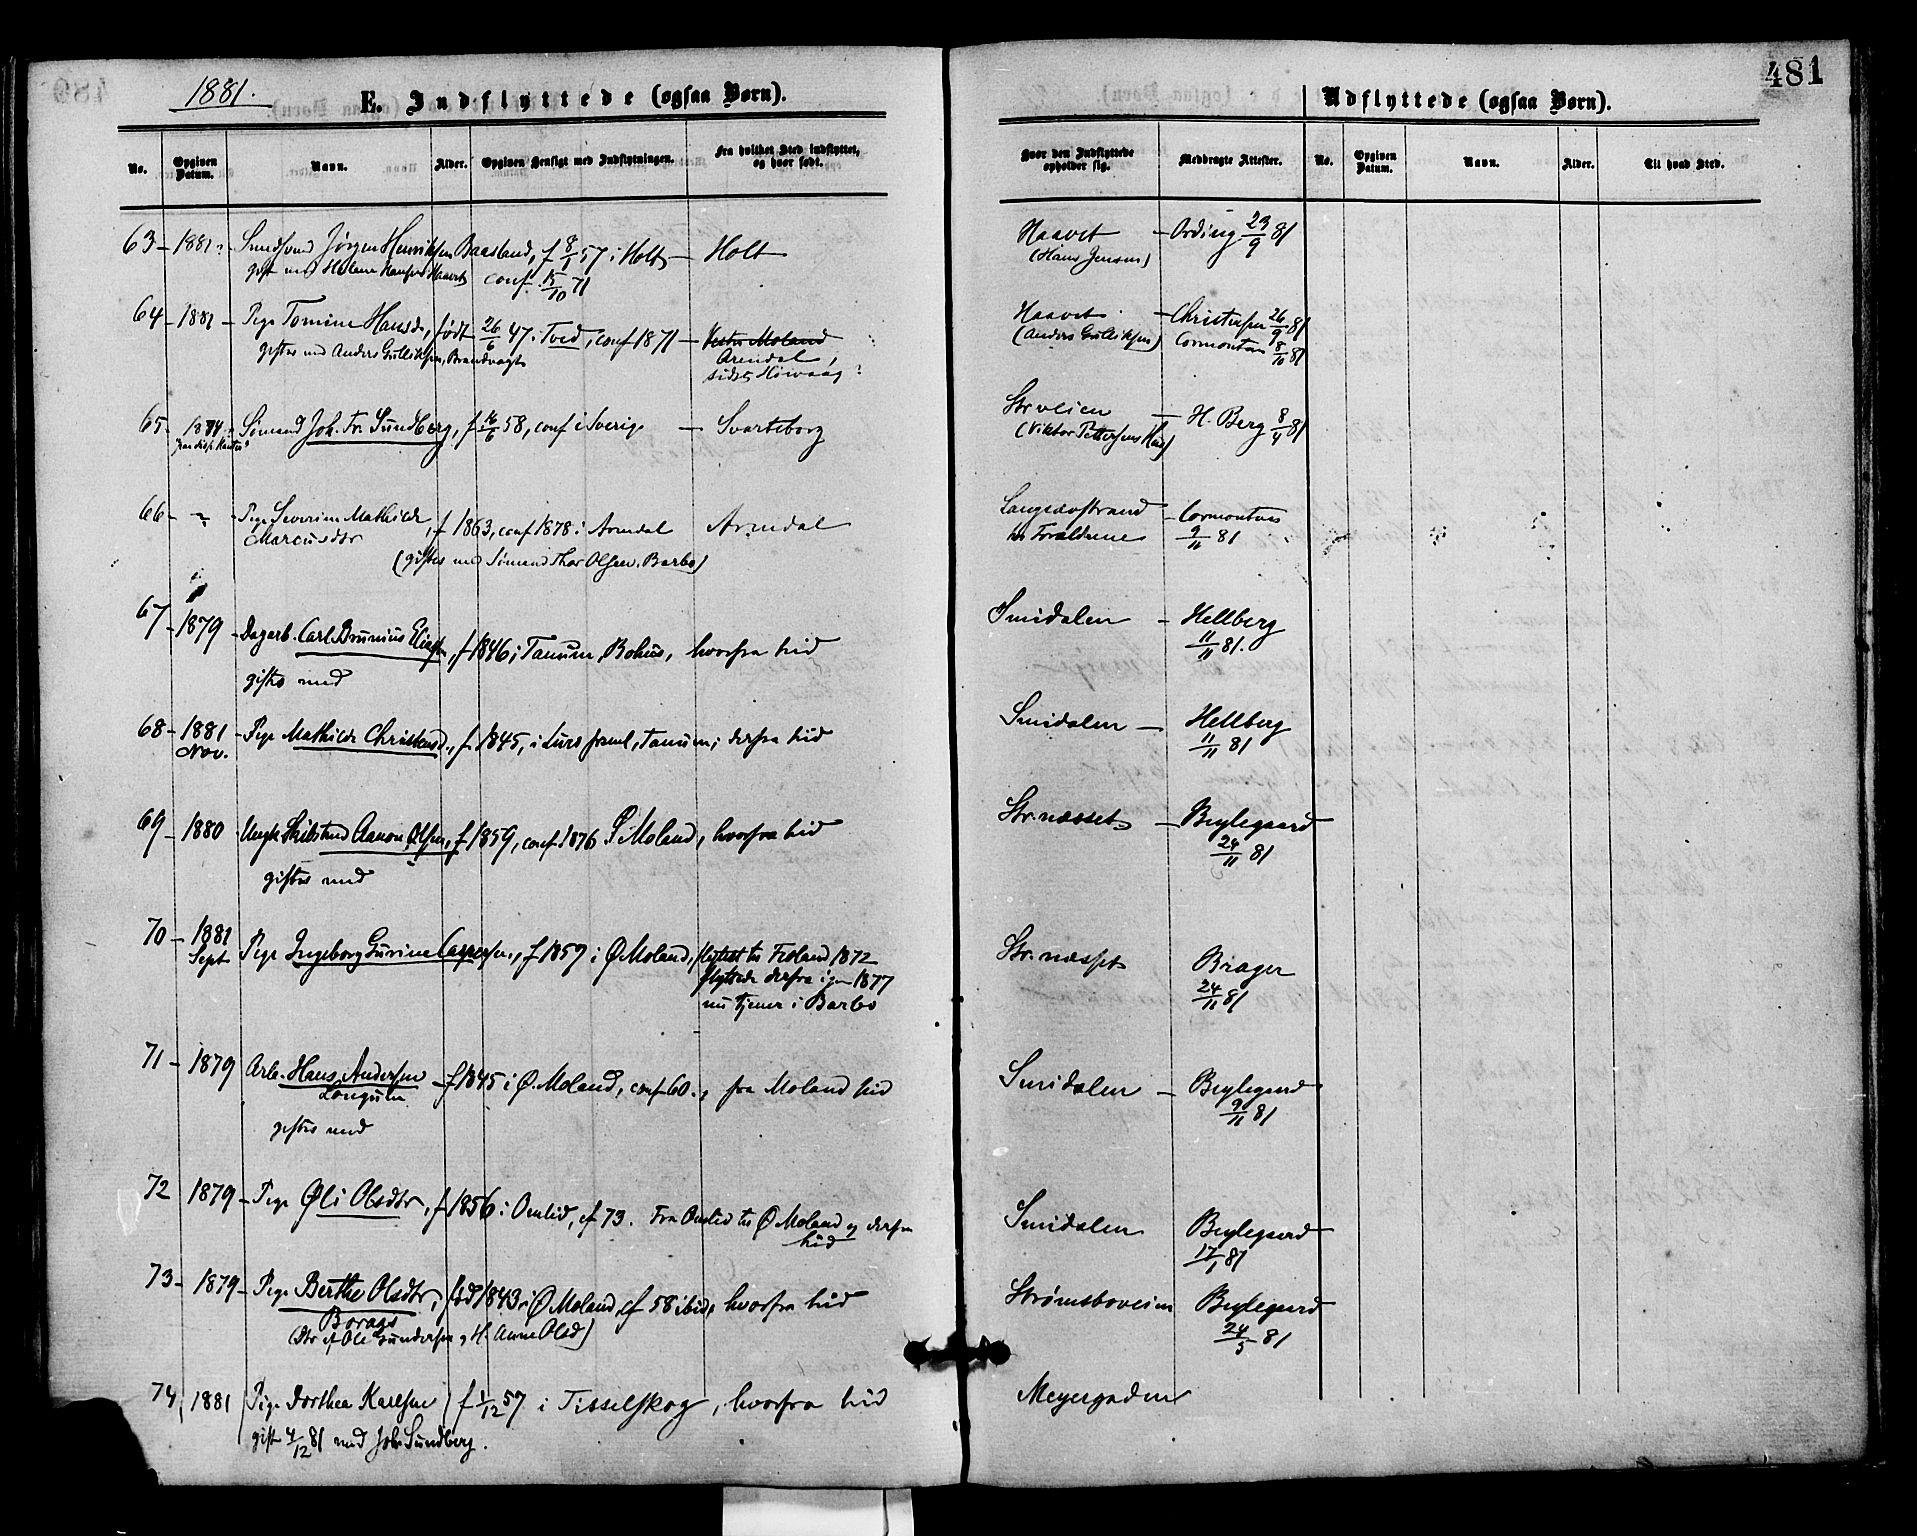 1881.
E. Indflyttede (ogsaa Børn).
No. Opgiven Datum. Navn. Alder. Opgiven Hensigt med Indflytningen. Fra hvilket Sted indflyttet, og hvor født.
63 - 1881 - Jørgen Henriksen Baasland, f 8/1 57 i Holt - Holt
gift med Helene conf. 15/10 71
64 - 1881 - Pige Tomine Hansd., født 26/6 47 i Tved, conf 1871 - Vester Moland
giftes med Anders Gulliksen, Brandvagt Arendal,
sidst Høivaag
65 - 1874 - Sømand Joh. Fr. Sundberg, f. 16/6 58, conf i Sverige - Svarteborg
66 - " - Pige Severine Mathilde f 1863, conf 1878 i Arendal Arendal
Marcusdtr
(giftes med Sømand Thor Olsen, Barbo)
67 - 1879 - Dagarb. Carl Brunius f 1846 i Tanum, Bohus, hvorfra hid
giftes med
68 - 1881 - Pige Mathilde Christensd., f 1845, i Lurs præst., Tanum; derfra hid
Nov.
69 - 1880 Ungk. Aanon Olsen, f 1859, conf 1876 Ø Moland, hvorfra hid
giftes med
70 - 1881 Pige Ingeborg Gurine Caspersen, f 1859 i Ø Moland, flyttet til Froland 1872
Sept flyttede derfra igjen 1877
nu tjener i Barbo
71 - 1879 Arb. Hans Andersen f 1845 i Ø. Moland, conf 60., fra Moland hid
Longum
giftes med
72 1879 - Pige Øli Olsdtr, f 1856 i Omlid, cf 73. Fra Omlid til Ø Moland og derfra
hid
73 - 1879 - Pige Berthe Olsdtr, født 1843 i Ø Moland, cf 58 ibid, hvorfra hid
Borags
(Dtr af Ole Gundersen og H. Anne Olsd)
74, 1881 Pige Dorthea Karlsen f 1/12 57 i Tisselskog, hvorfra hid
gift 4/12 81 med Joh. Sundberg.
481
Udflyttede (ogsaa Børn).
Hvor den Indflyttede opholder sig. Medbragte Attester. No. Opgiven Datum. Navn. Alder. Til hvad Sted.
Haavet - Ording 23/9 81
(Hans Jensen)
Haavet - Christensen 26/9 81
(Anders Gulliksen) Cormontan 8/10 81
Str.veien - H. Berg 8/4 81
(Viktor Pettersens Hus)
Langsævstrand - Cormontan
hos Forældrene 9/11 81
Smidalen - Hellberg
11/11 81.
Smidalen - Hellberg
11/11 81
Str.næsset - Beylegaard
24/11 81
Str.næsset Brager
24/11 81
Smidalen - Beylegaard
9/11 81
Smidalen Beylegaard
17/1 81
Strømsboveien Beylegaard
24/5 81
Meyergaden